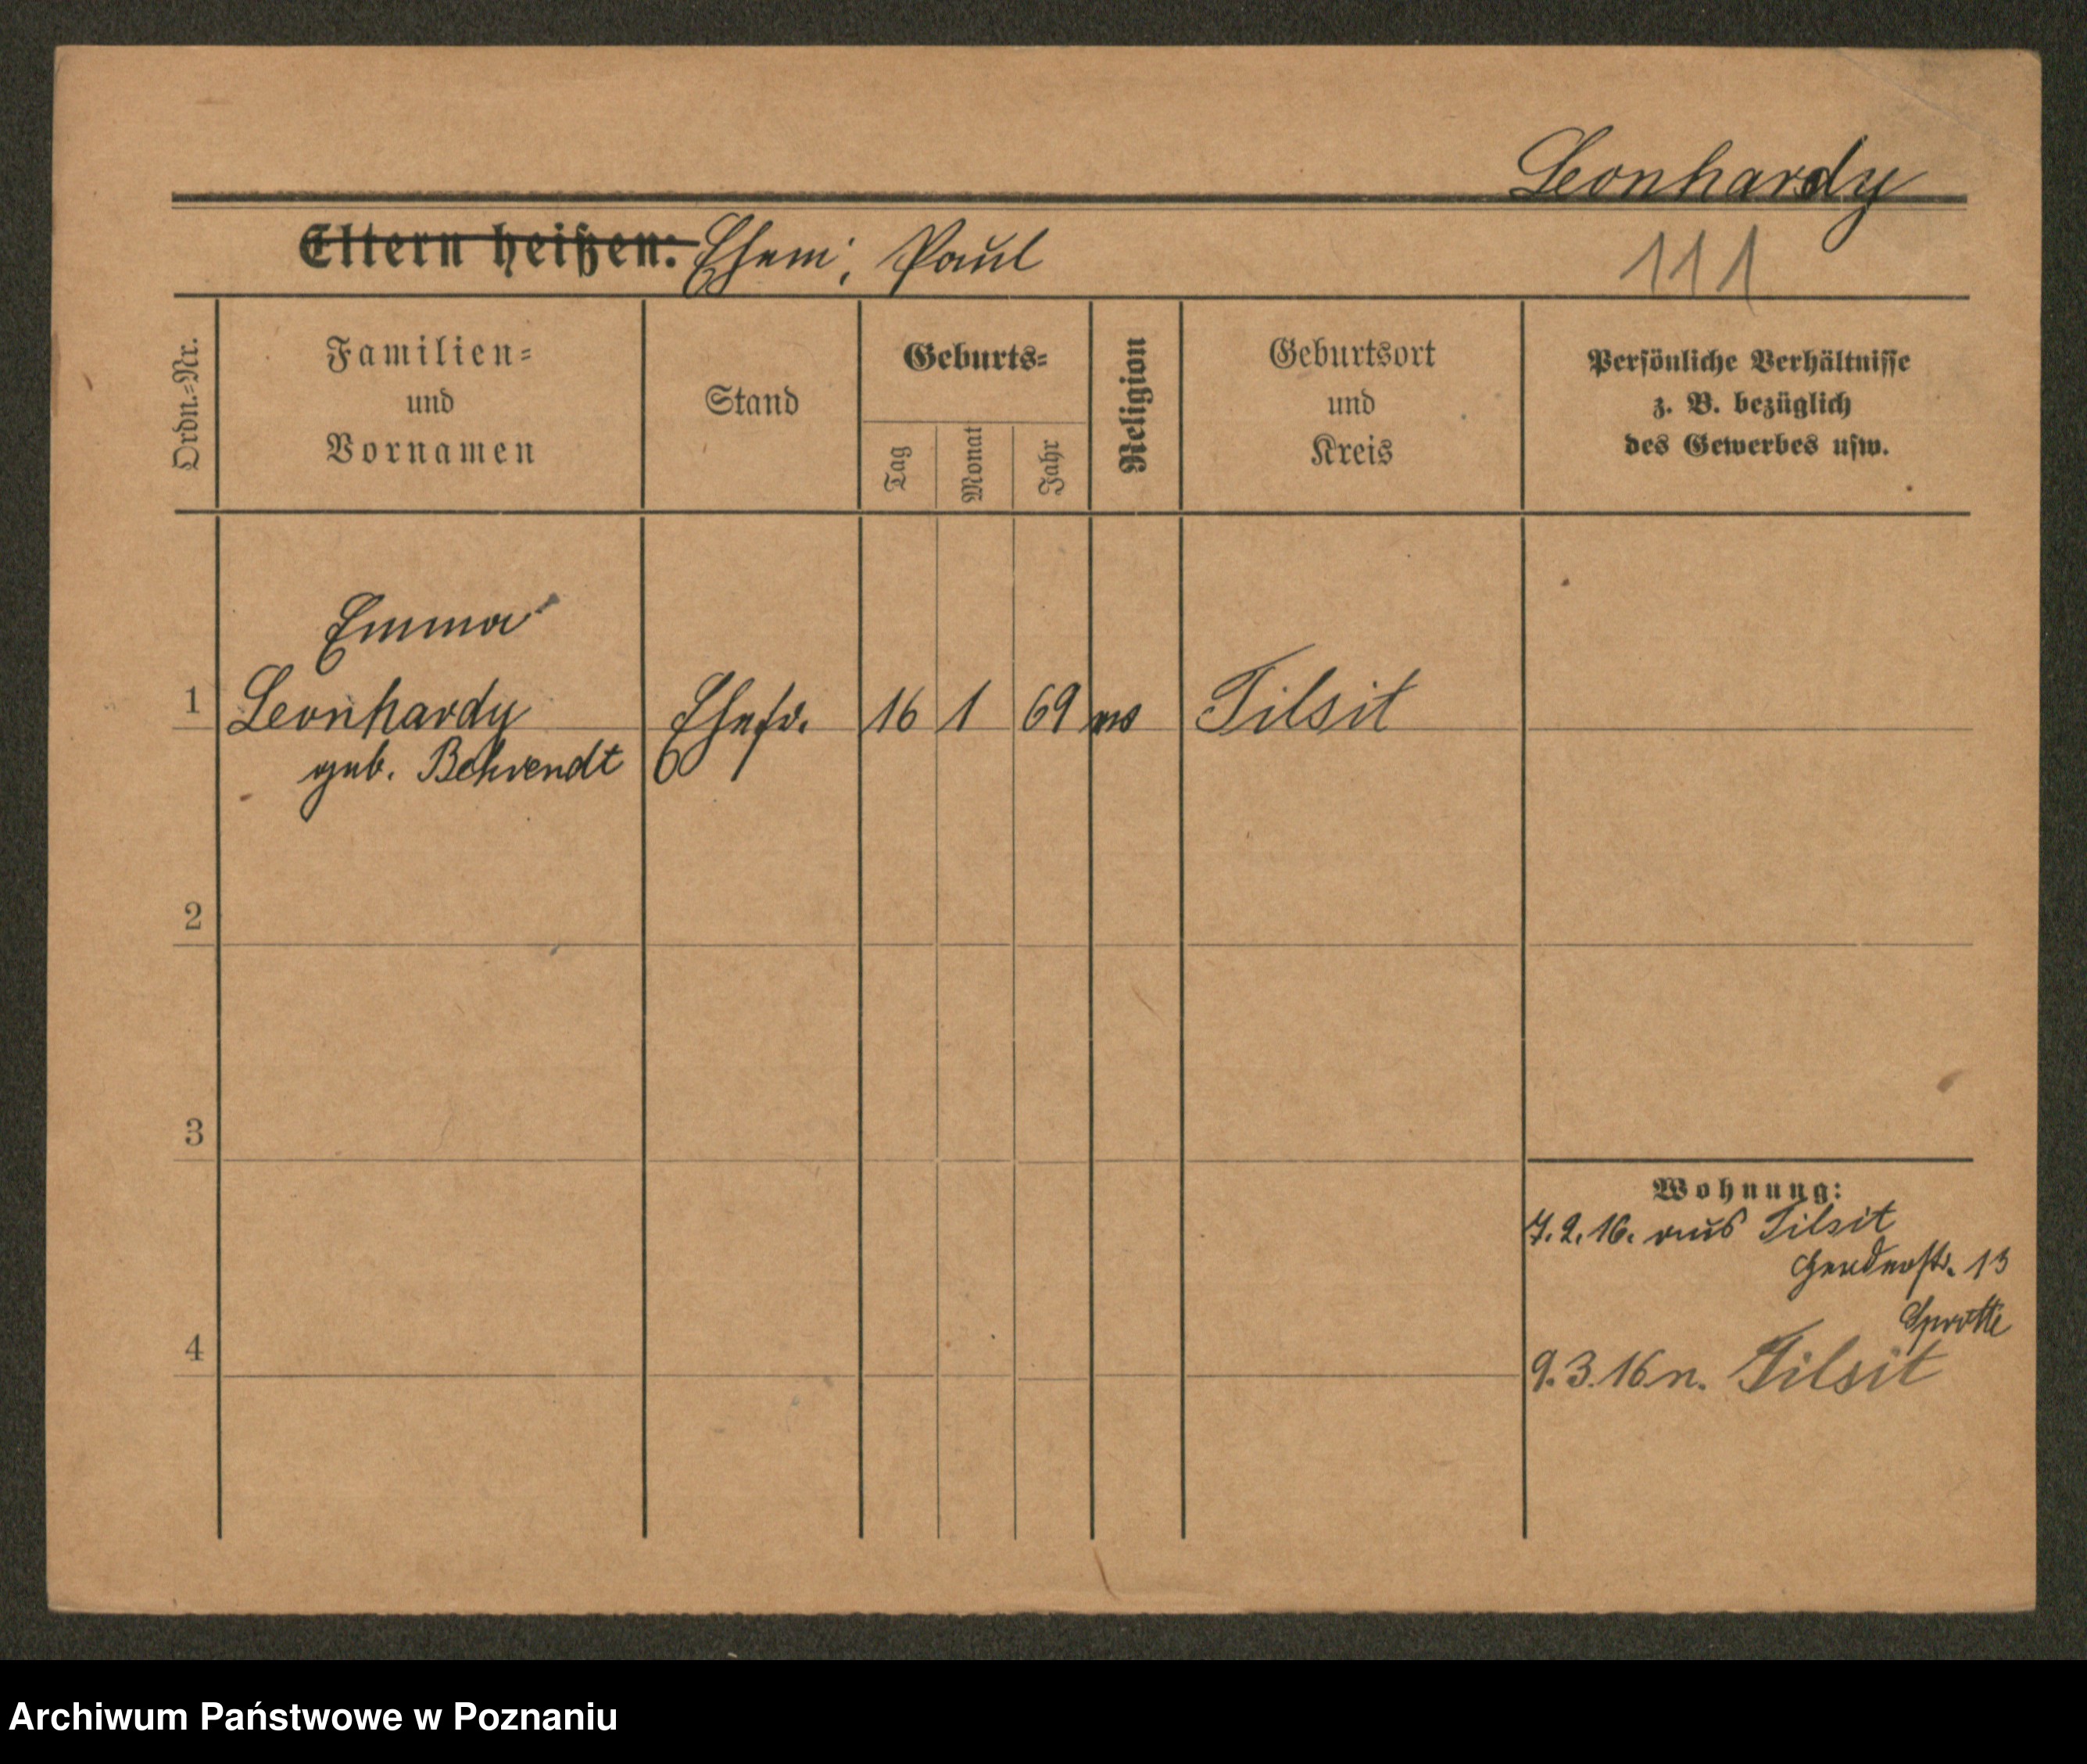 Leonhardy
Eltern heißen: Ehem: Paul
111
Ordn.-Nr.
Familien-
und
Vornamen
Stand
Geburts-
Tag
Monat
Jahr
Religion
Geburtsort
und
Kreis
Persönliche Verhältnisse
z. B. bezüglich
des Gewerbes usw.
Emma
1 Leonhardy Ehefr. 16 1 69 Tilsit
geb. Behrendt
2
3
4
Wohnung:
7.2.16. aus Tilsit
13
9.3.16 n. Tilsit
Archiwum Państwowe w Poznaniu